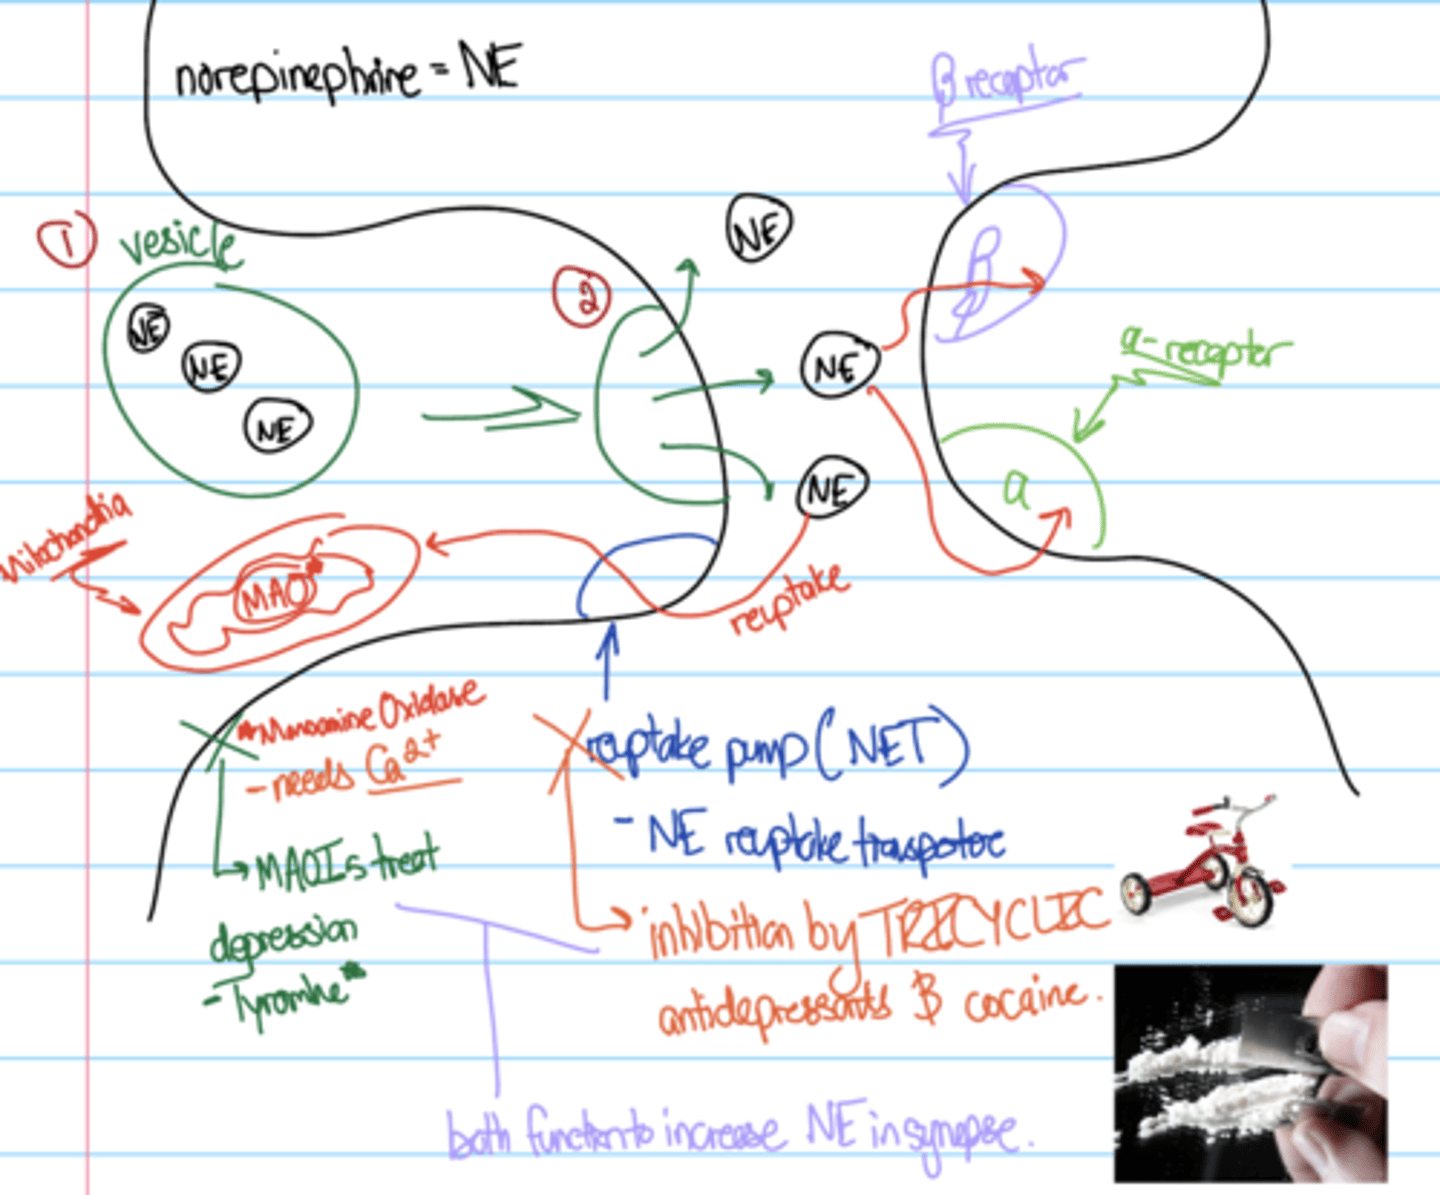 norepinephrine = NE
β receptor
① vesicle
NE
NE
NE
②
NE
NE
NE
β
α-receptor
α
Mitochondria
MAO*
reuptake
*Monoamine Oxidase
- needs Ca2+
MAOIs treat
depression
- Tyramine*
reuptake pump (NET)
- NE reuptake transporter
inhibition by TRICYCLIC
antidepressants & cocaine.
both function to increase NE in synapse.